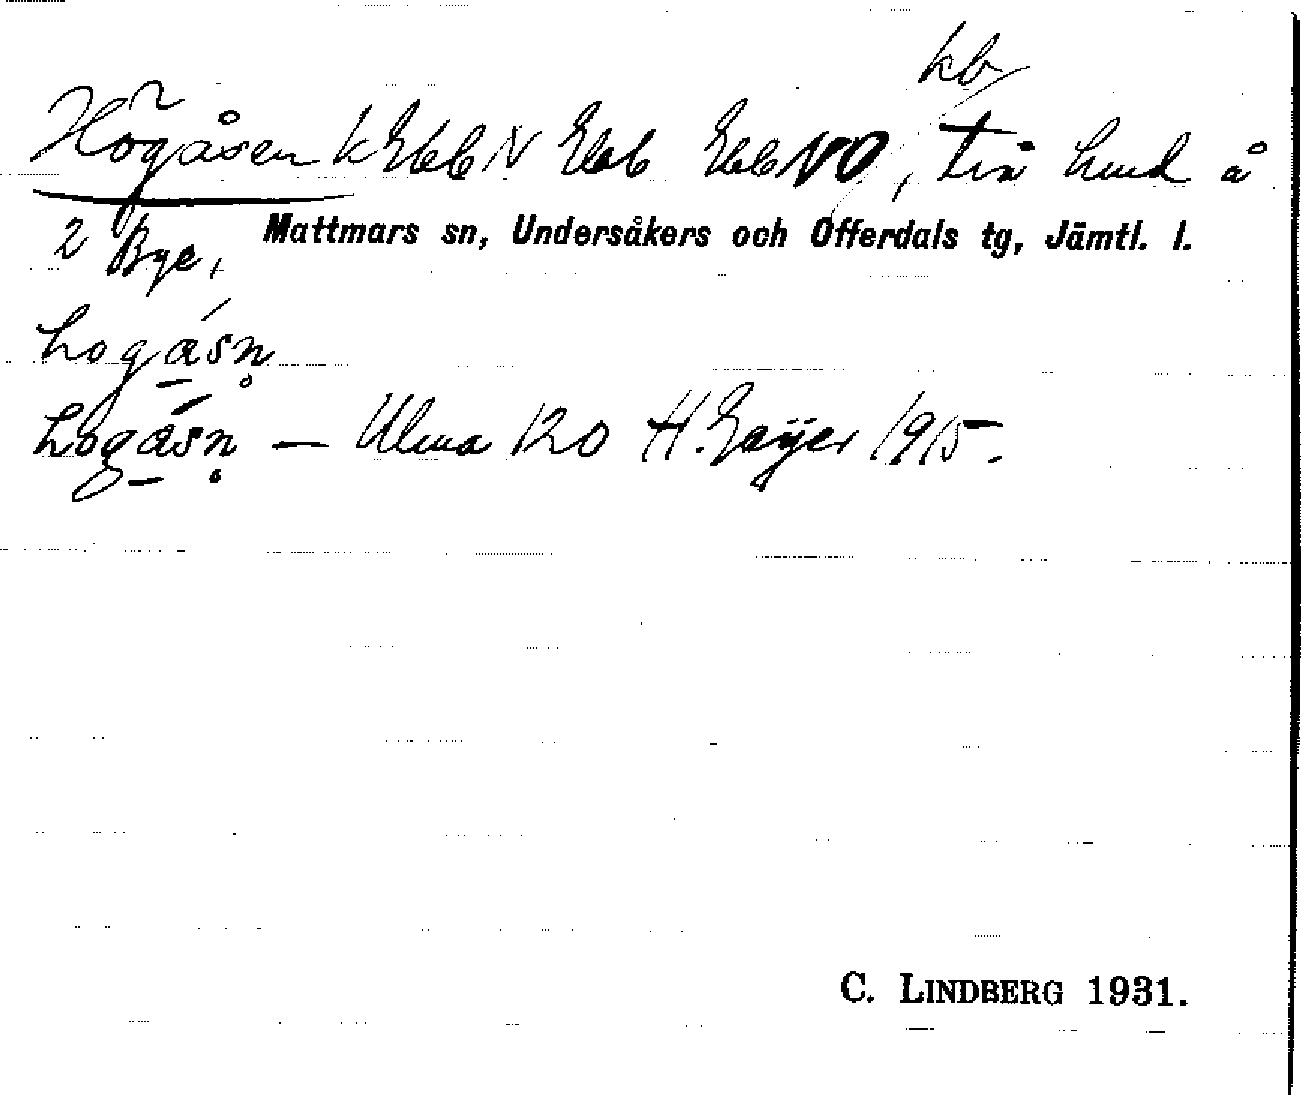 kb
Högåsen k Ebb N Ebb Ebb NO, två hmd å
2 Bge,
Mattmars sn, Undersåkers och Offerdals tg, Jämtl. l.
hogásn̥
hogásn̥ — Ulma 120 H. Geijer 1915.
C. LINDBERG 1931.